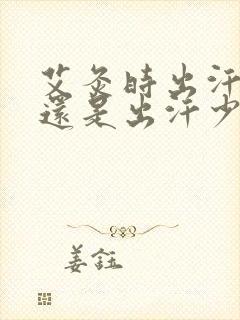 艾灸時出汗
還是出汗少
姜鈺